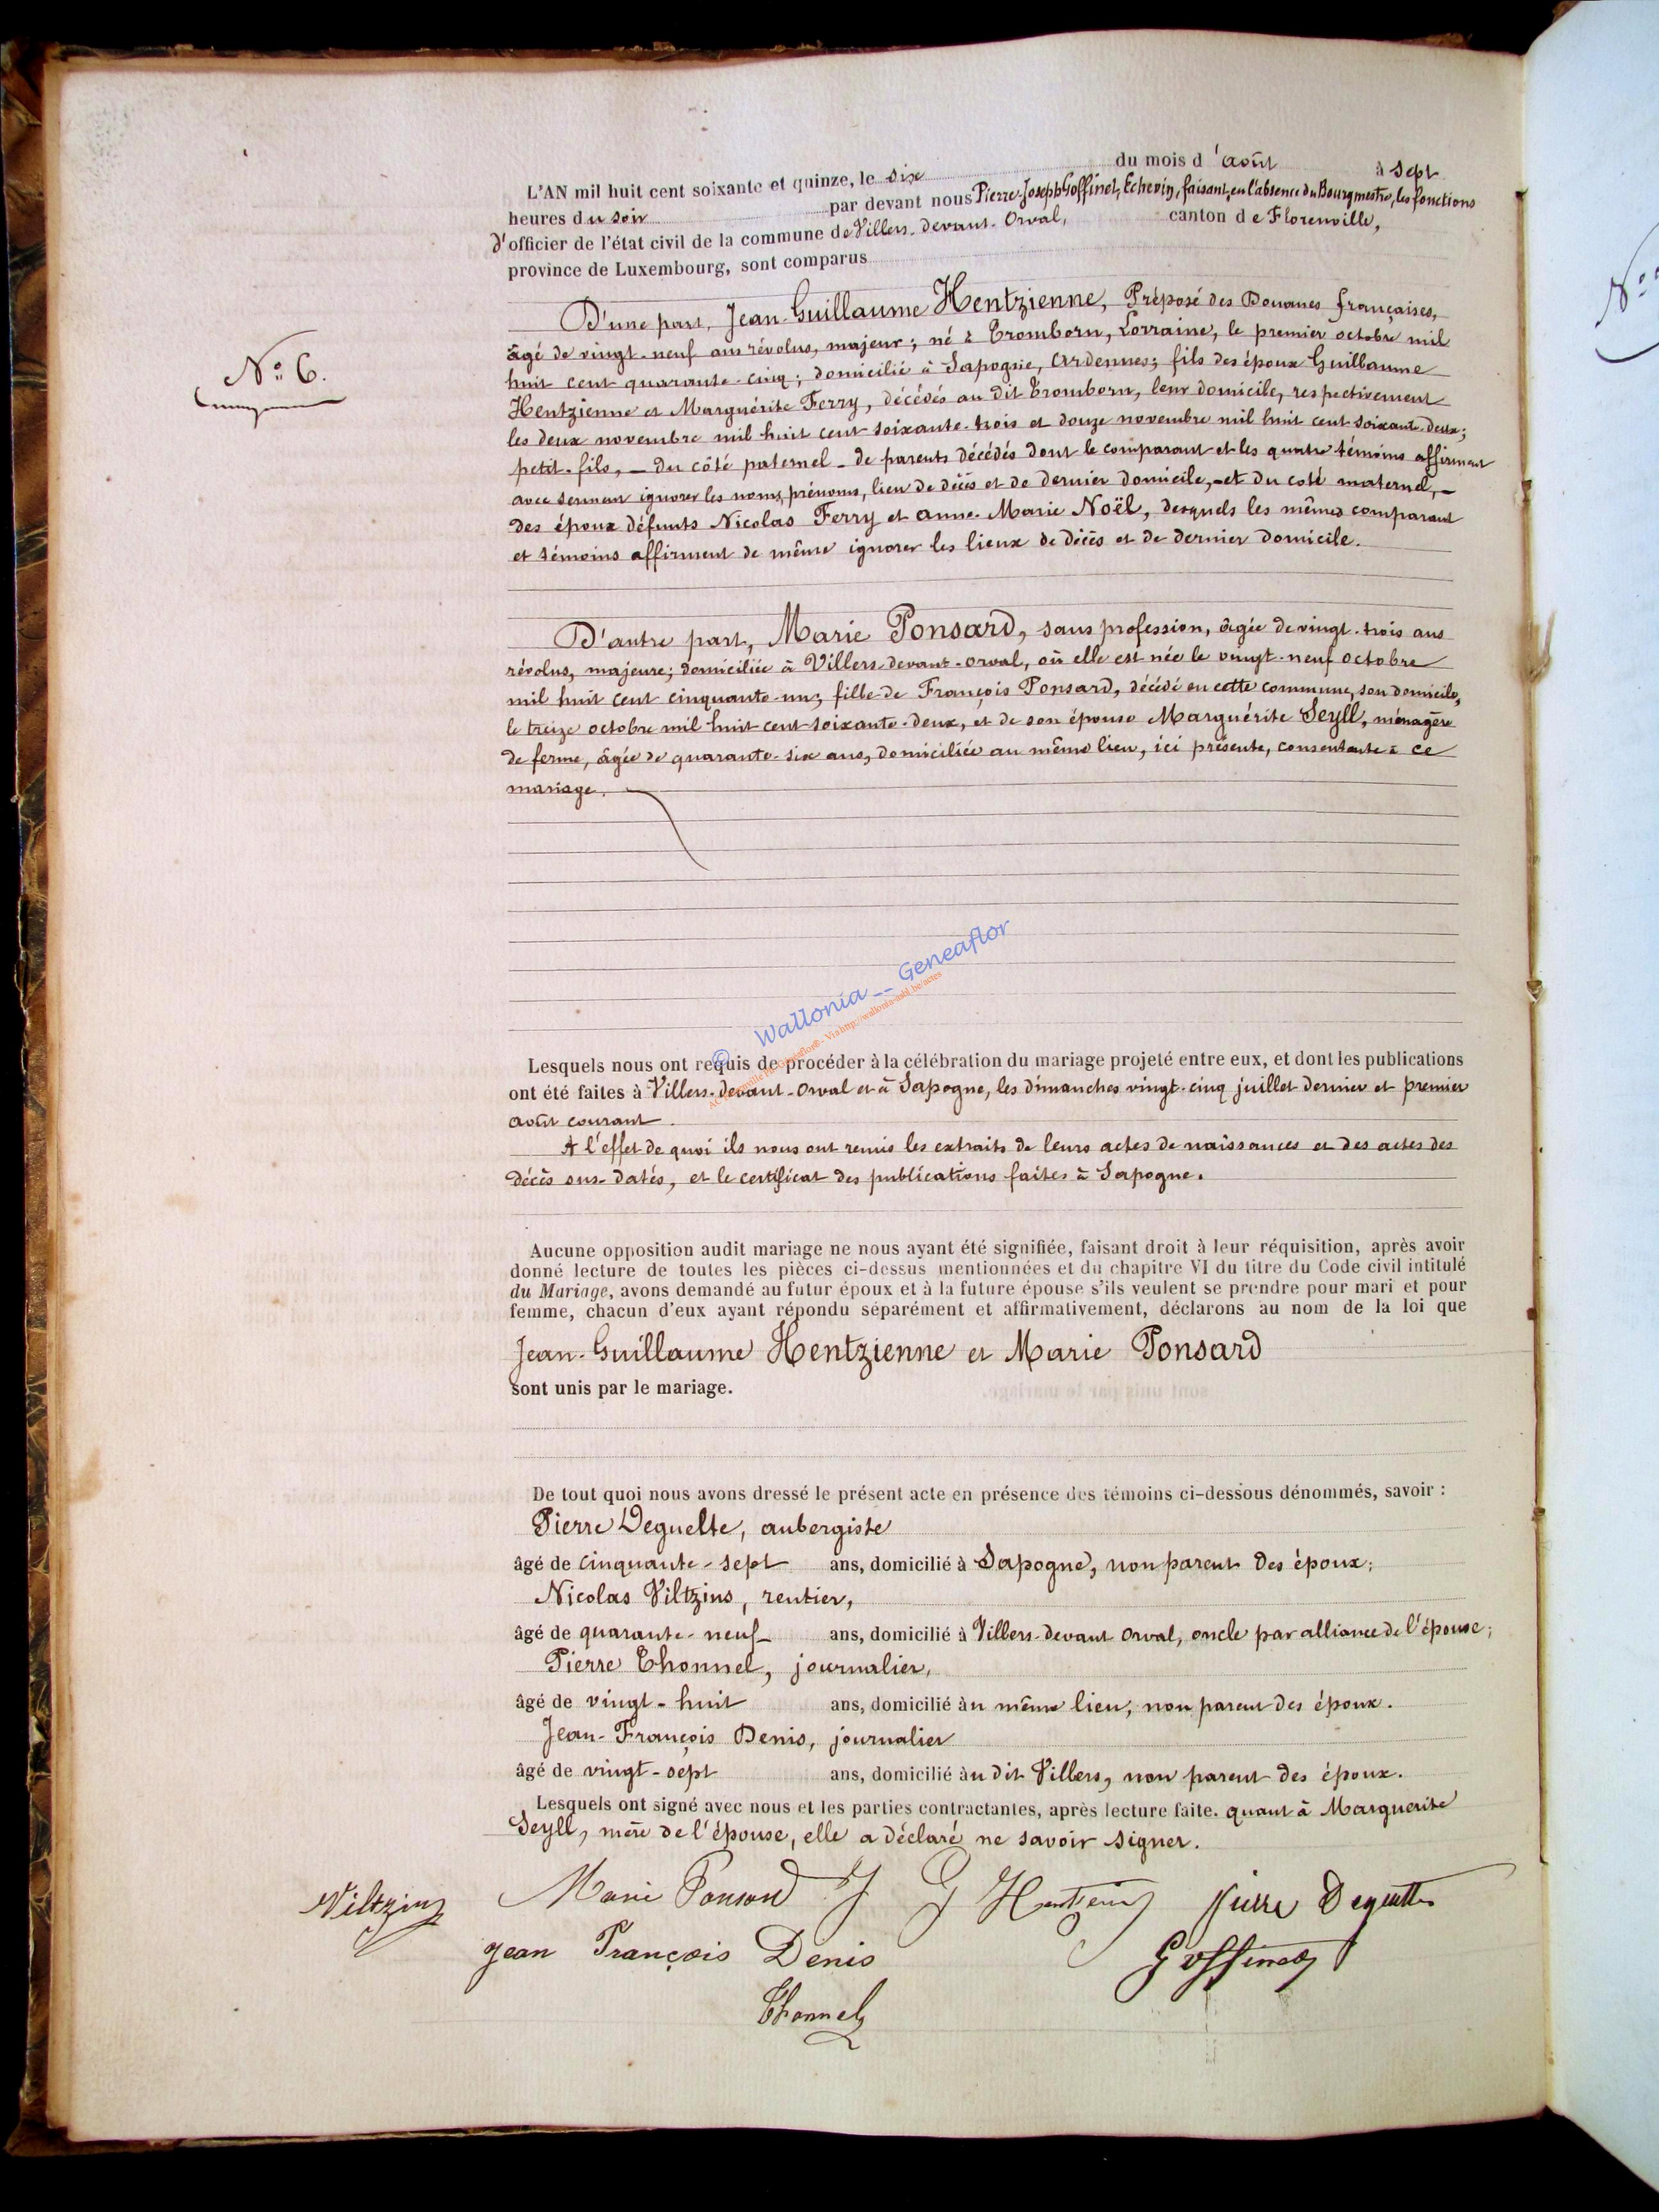 L'AN mil huit cent soixante et quinze, le six du mois d'août à sept
heures du soir par devant nous Pierre-Joseph Goffinet, Echevin, faisant, en l'absence du Bourgmestre, les fonctions
d'officier de l'état civil de la commune de Villers-devant-Orval, canton de Florenville,
province de Luxembourg, sont comparus
D'une part, Jean-Guillaume Hentzienne, Préposé des Douanes françaises,
âgé de vingt-neuf ans révolus, majeur; né à Tromborn, Lorraine, le premier octobre mil
N° 6.
huit cent quarante-cinq; domicilié à Sapogne, Ardennes; fils des époux Guillaume
Hentzienne et Marguérite Ferry, décédés au dit Tromborn, leur domicile, respectivement
les deux novembre mil huit cent soixante-trois et douze novembre mil huit cent soixante-deux;
petit-fils, — du côté paternel — de parents décédés dont le comparant et les quatre témoins affirment
avec serment ignorer les noms, prénoms, lieu de décès et de dernier domicile, — et du coté maternel, —
des époux défunts Nicolas Ferry et Anne-Marie Noël, desquels les mêmes comparant
et témoins affirment de même ignorer les lieux de décès et de dernier domicile.
D'autre part, Marie Ponsard, sans profession, âgée de vingt-trois ans
révolus, majeure; domiciliée à Villers-devant-Orval, où elle est née le vingt-neuf octobre
mil huit cent cinquante-un; fille de François Ponsard, décédé en cette commune, son domicile,
le treize octobre mil huit cent soixante-deux, et de son épouse Marguérite Seyll, ménagère
de ferme, âgée de quarante-six ans, domiciliée au même lieu, ici présente, consentante à ce
mariage.
© Wallonia -- Geneaflor
Via http://wallonia-asbl.be/actes
Lesquels nous ont requis de procéder à la célébration du mariage projeté entre eux, et dont les publications
ont été faites à Villers-devant-Orval et à Sapogne, les dimanches vingt-cinq juillet dernier et premier
août courant.
A l'effet de quoi ils nous ont remis les extraits de leurs actes de naissances et des actes des
décès sus-datés, et le certificat des publications faites à Sapogne.
Aucune opposition audit mariage ne nous ayant été signifiée, faisant droit à leur réquisition, après avoir
donné lecture de toutes les pièces ci-dessus mentionnées et du chapitre VI du titre du Code civil intitulé
du Mariage, avons demandé au futur époux et à la future épouse s'ils veulent se prendre pour mari et pour
femme, chacun d'eux ayant répondu séparément et affirmativement, déclarons au nom de la loi que
Jean-Guillaume Hentzienne et Marie Ponsard
sont unis par le mariage.
De tout quoi nous avons dressé le présent acte en présence des témoins ci-dessous dénommés, savoir :
Pierre Deguelte, aubergiste
âgé de cinquante-sept ans, domicilié à Sapogne, non parent des époux;
Nicolas Viltzius, rentier,
âgé de quarante-neuf ans, domicilié à Villers-devant Orval, oncle par alliance de l'épouse;
Pierre Thonnel, journalier,
âgé de vingt-huit ans, domicilié àu même lieu, non parent des époux.
Jean-François Denis, journalier
âgé de vingt-sept ans, domicilié àu dit Villers, non parent des époux.
Lesquels ont signé avec nous et les parties contractantes, après lecture faite. quant à Marguerite
Seyll, mère de l'épouse, elle a déclaré ne savoir signer.
Viltzius Marie Ponsard J G Pierre Deguelte
Jean François Denis Goffinet
Thonnel
N°